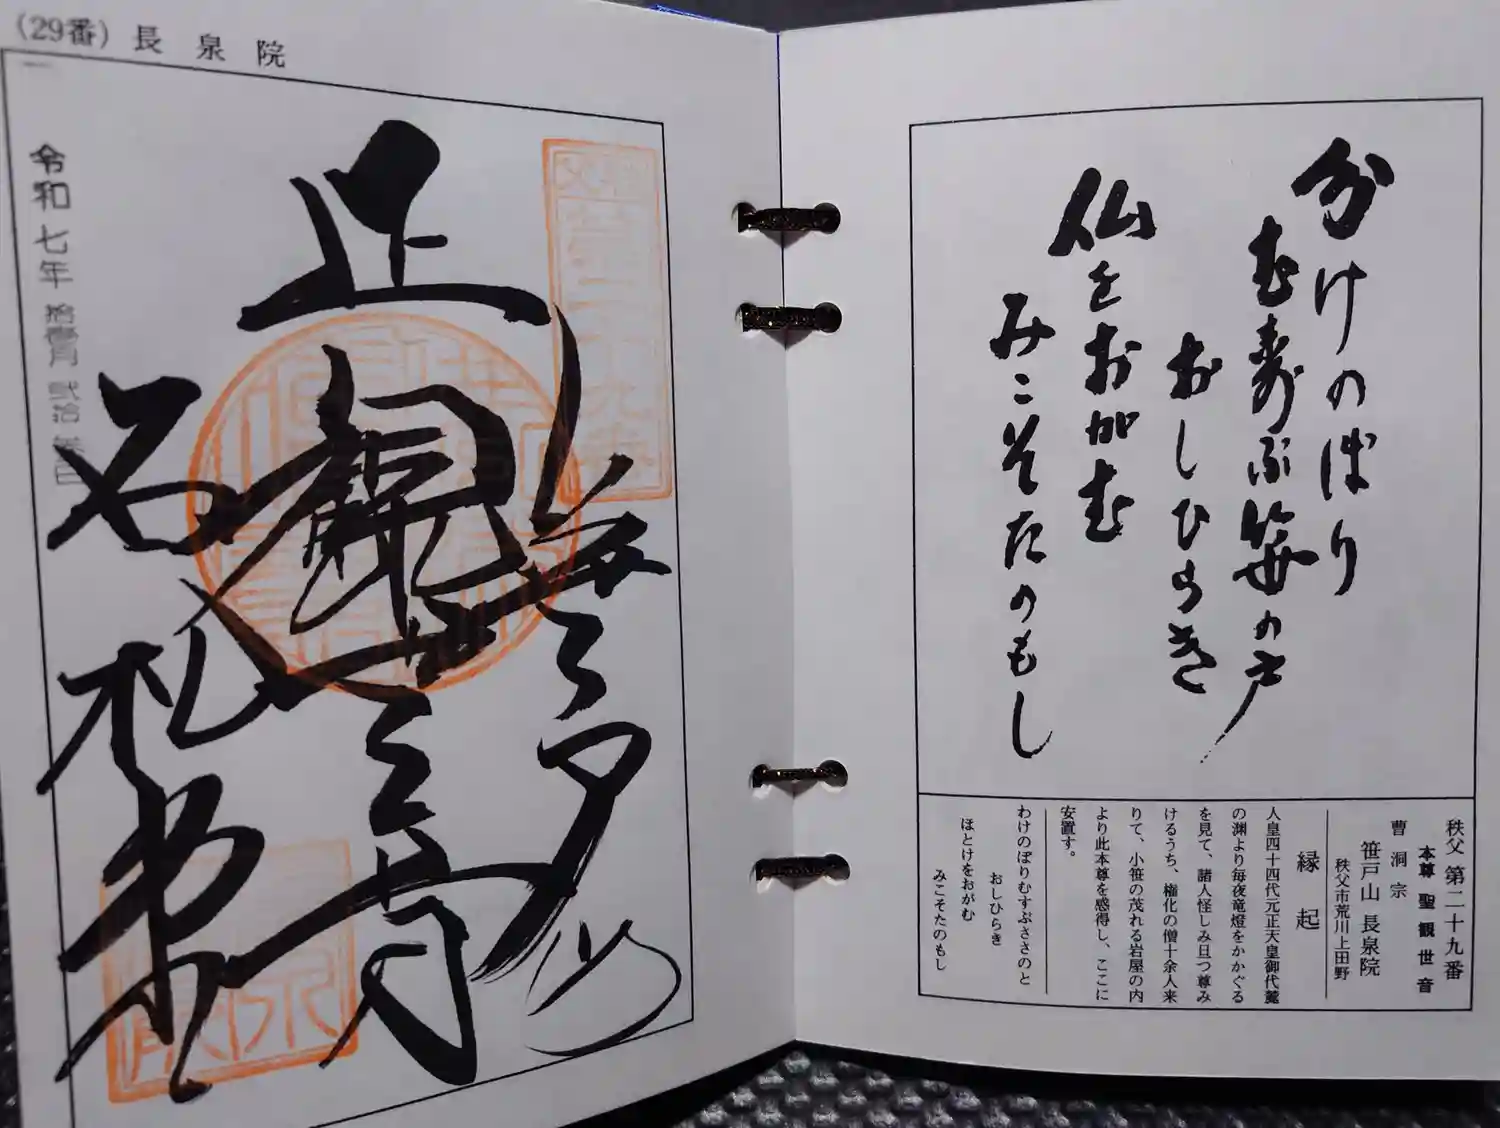 (29番) 長泉院
令和七年 拾壱月 弐拾
正観世音
石札堂
分けのぼり
むすぶ笹の戸
おしひらき
仏をおがむ
みこそたのもし
秩父 第二十九番
本尊 聖観世音
曹洞宗
笹戸山 長泉院
秩父市荒川上田野
縁起
人皇四十四代元正天皇御代麓
の渊より毎夜竜燈をかかぐる
を見て、諸人怪しみ旦つ尊み
けるうち、権化の僧十余人来
りて、小笹の茂れる岩屋の内
より此本尊を感得し、ここに
安置す。
わけのぼりむすぶささのと
おしひらき
ほとけをおがむ
みこそたのもし